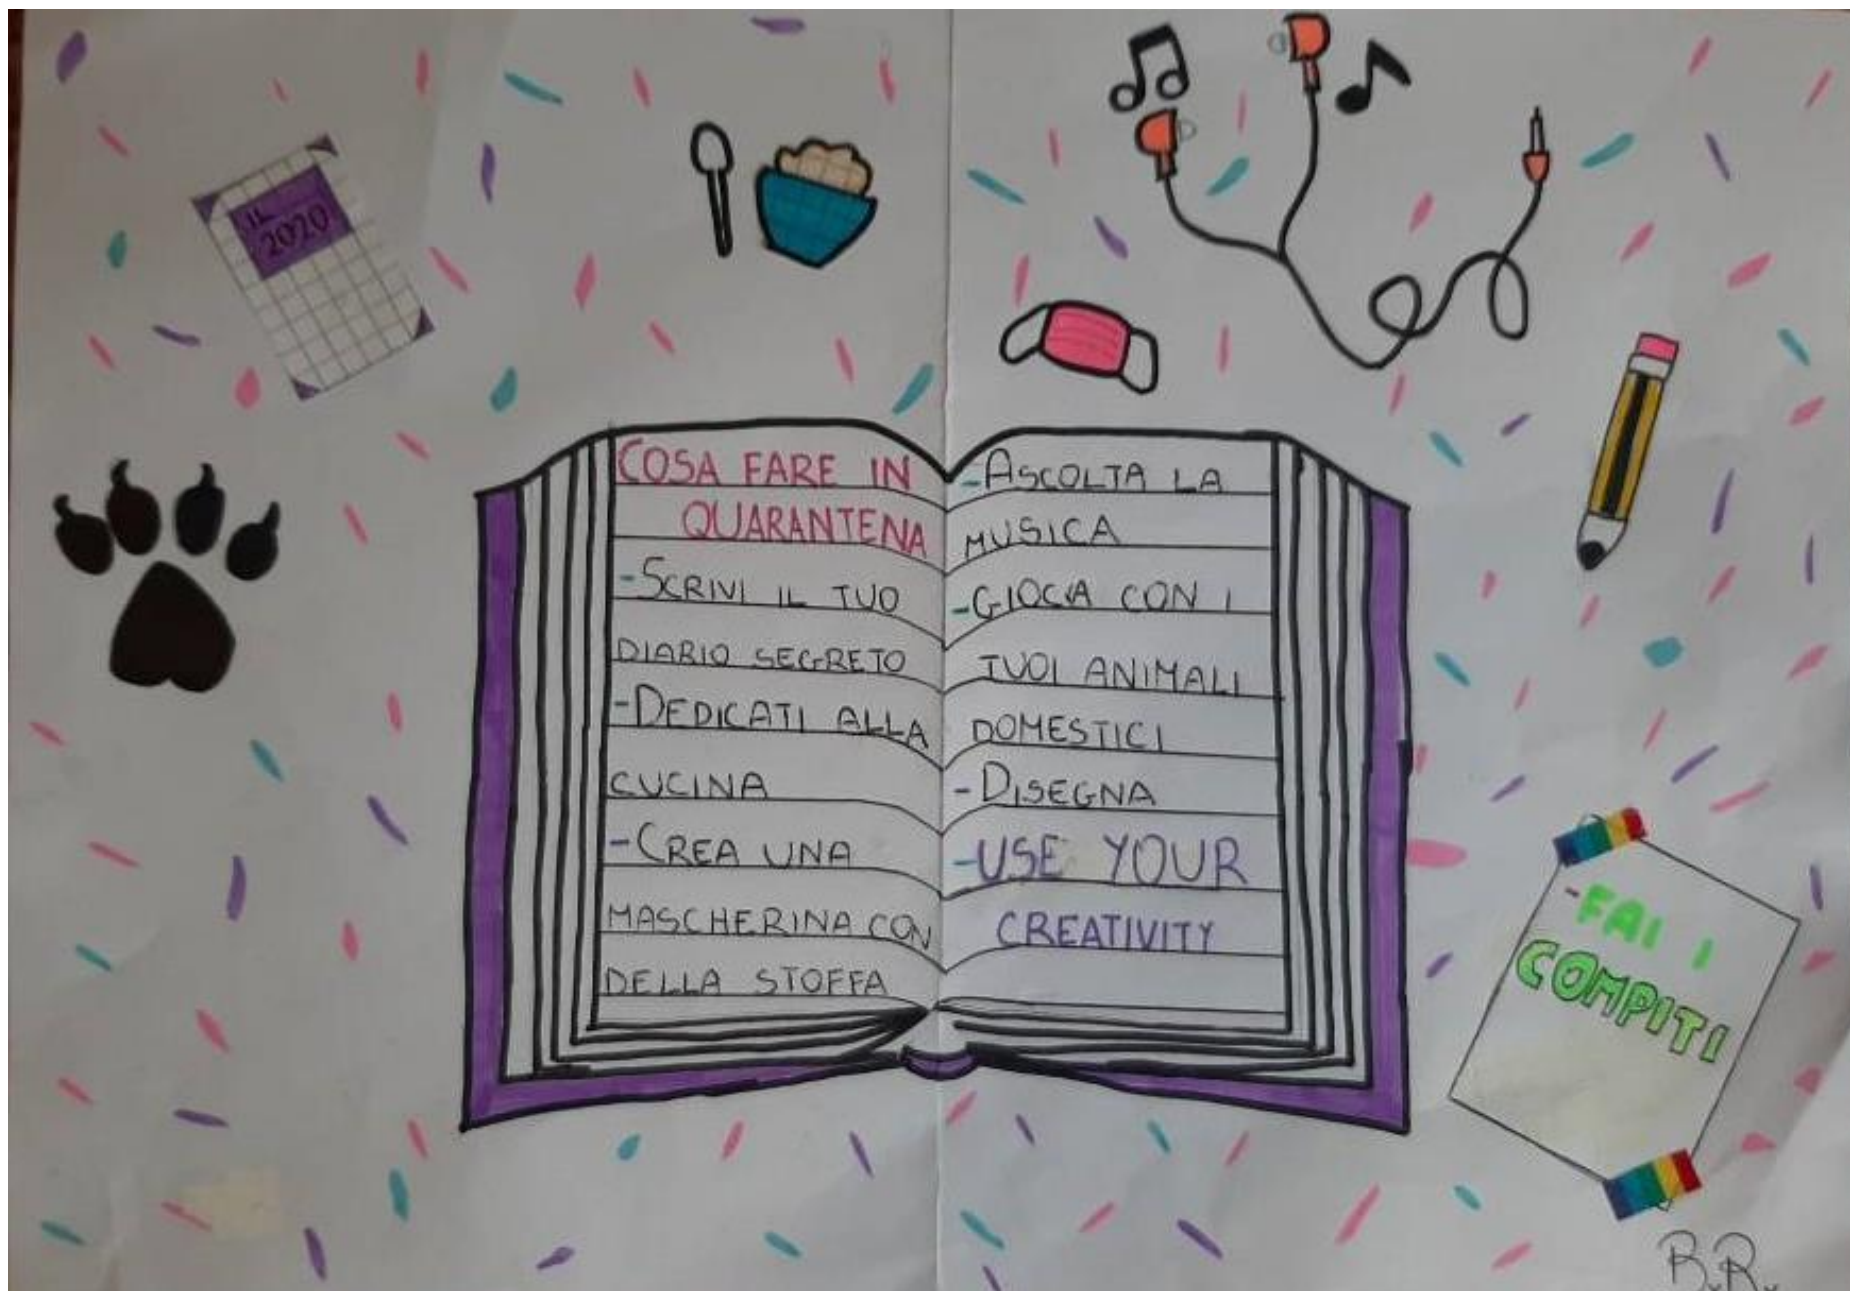 IL
2020
COSA FARE IN
QUARANTENA
-SCRIVI IL TUO
DIARIO SEGRETO
-DEDICATI ALLA
CUCINA
-CREA UNA
MASCHERINA CON
DELLA STOFFA
-ASCOLTA LA
MUSICA
-GIOCA CON I
TUOI ANIMALI
DOMESTICI
-DISEGNA
-USE YOUR
CREATIVITY
-FAI I
COMPITI
B.R.